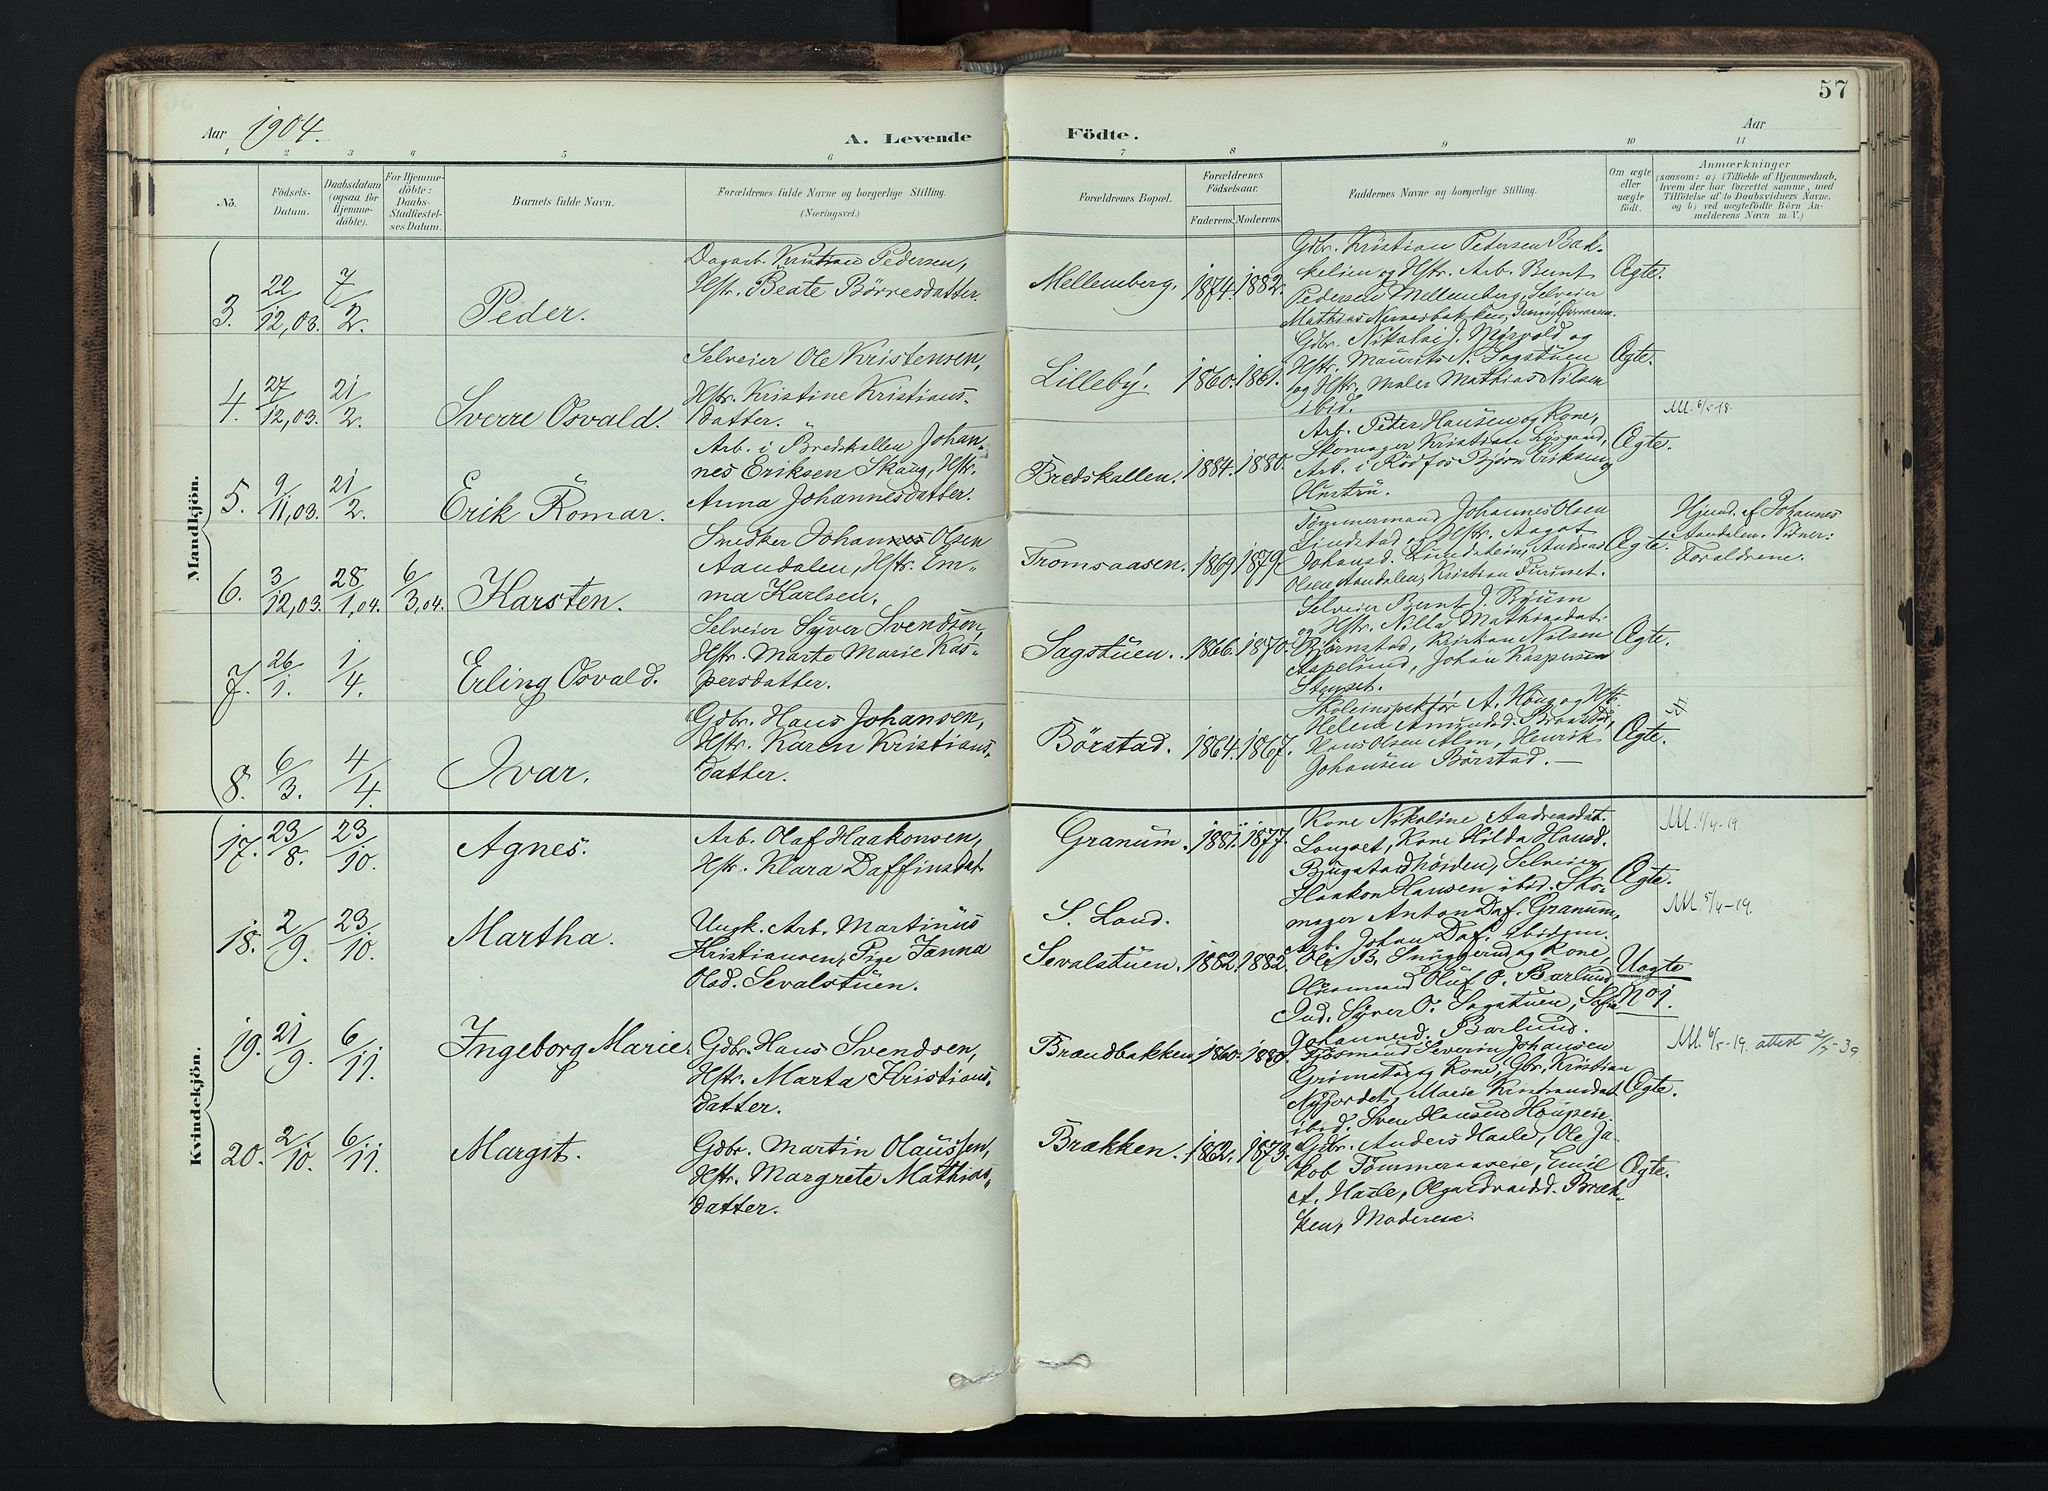 57
Aar 1904.
A. Levende Födte.
Aar
1 2 3 4 5 6 7 8 9 10 11
No. Födsels-Datum. Daabsdatum (ogsaa for Hjemmedöbte). For Hjemmedöbte: Daabs-Stadfæstelses Datum. Barnets fulde Navn. Forældrenes fulde Navne og borgerlige Stilling. (Næringsvei.)
Forældrenes Bopæl. Forældrenes Födselsaar. Faderens. Moderens. Faddernes Navne og borgerlige Stilling. Om ægte eller uægte födt.
Anmærkninger
(saasom: a) i Tilfælde af Hjemmedaab,
hvem der har forrettet samme, med
Tilföielse af to Daabsvidners Navne.
og b) ved uægtefödte Börn An-
melderens Navn m. V.)
Mandkjön.
3. 22/12,03. 7/2. Peder.
Dagarb. Kristian Pedersen,
Hstr. Beate Börresdatter.
Mellemberg. 1874. 1882.
Gdbr. Kristian Petersen Bak-
kelien og Hstr. Arb. Bernt
Pedersen Mellemberg, Selveier
Ægte.
4. 27/12,03. 21/2. Sverre Osvald.
Selveier Ole Kristensen,
Hstr. Kristine Kristians-
datter.
Lilleby. 1860. 1861.
Gdbr. Nikolai J. og
Hstr. Maurits N. Sagstuen
og Hstr. Maler Mathias Nilsen
ibid.
Ægte.
M. 6/5-18.
5. 9/11,03. 21/2. Erik Romar.
Arb. i Bredskallen Johan-
nes Eriksen Skaug, Hstr.
Anna Johannesdatter.
Bredskallen. 1884. 1880.
Arb. Peter Hansen og Kone,
Skomager Lysgaard,
Arb. i Rödfos Björn Eriksen og
Hustru.
Ægte.
6. 3/12,03. 28/1,04. 6/3,04. Karsten.
Snedker Johannes Olsen
Aandalen, Hstr. Em-
ma Karlsen.
Tromsaasen. 1869. 1879.
Tömmermand Johannes Olsen
og Hstr. Aagot
Johansd. Andreas
Olsen Aandalen, Kristian Furuset.
Ægte.
Hjemd. af Johannes
Aandalen. Vidner:
Foraldrene.
7. 26/1. 1/4. Erling Osvald.
Selveier Syver Svendsen,
Hstr. Marte Marie Kas-
persdatter.
Sagstuen. 1866. 1870.
Selveier Bernt J.
og Hstr. Nilla Mathiasdat.
Björnstad, Kristian Nilsen
Johan Kaspersen
Ægte.
8. 6/3. 4/4. Ivar.
Gdbr. Hans Johansen,
Hstr. Karen Kristians-
datter.
Börstad. 1864. 1867.
Skoleinspektör A. og Hstr.
Helene
Hans Olsen Alm, Henrik
Johansen Börstad. —
Ægte.
Kvindekjön.
17. 23/8. 23/10. Agnes.
Arb. Olaf Haakonsen,
Hstr. Klara Daffinsdat.
Granum. 1881. 1877.
Kone Nikoline Andreasdat.
Longset, Kone Hilda Hansd.
Selveier
Haakon Hansen ibid. Sko-
mager Anton Daf. Granum,
Arb. Johan Daf. ibidem.
Ægte.
M. 1/4-19.
18. 2/9. 23/10. Martha.
Ungk. Arb. Martinus
Kristiansen, Pige Janna
Olsd. Sevalstuen.
S. Land.
Sevalstuen. 1882. 1882.
Ole B. og Kone,
Oluf O. Bærlund,
Ind. Syver O. Sagstuen, Sofie
Johannesd. Bærlund.
Uægte
No 1.
M. 5/4-19.
19. 21/9. 6/11. Ingeborg Marie.
Gdbr. Hans Svendsen,
Hstr. Marta Kristians-
datter.
Brændbakken. 1860. 1880.
Severin Johansen
og Kone, Gbr. Kristian
Marie Kristiansdat.
ibid. Sven Hansen
Ægte.
M. 6/5-19. attest 2/7-39
20. 2/10. 6/11. Margit.
Gdbr. Martin Olaussen,
Hstr. Margrete Mathias-
datter.
Brækken. 1862. 1873.
Gdbr. Anders Hasle, Ole Ja-
kob Emil
A. Hasle, Olga Edvardsd. Bræk-
ken, Moderen.
Ægte.